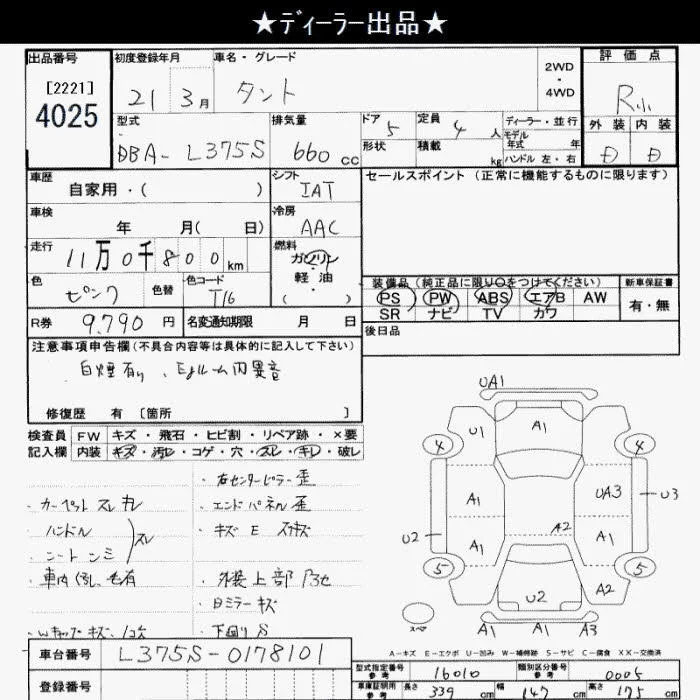 ★ディーラー出品★
出品番号
[2221]
4025
初度登録年月
21 3月
車名・グレード
タント
2WD
・
4WD
評価点
R小
外装 内装
D D
型式
DBA-L375S
排気量
660 cc
ドア
5
定員
4 人
形状
積載
kg
ディーラー・並行
モデル
年式 年
ハンドル 左・右
車歴
自家用・( )
シフト
IAT
セールスポイント (正常に機能するものに限ります)
車検
年 月( 日)
冷房
AAC
走行
11万0千800km
燃料
ガソリン
・
軽・油
( )
色
ピンク
色替
色コード
T16
装備品 (純正品に限り○をつけてください)
PS PW ABS エアB AW
SR ナビ TV カワ
新車保証書
有・無
R券
9,790 円
名変通知期限 月 日
後日品
注意事項申告欄 (不具合内容等は具体的に記入して下さい)
白煙有り、Egルーム内異音
修復歴 有 [箇所 ]
検査員
記入欄
FW キズ・飛石・ヒビ割・リペア跡・×要
内装 キズ・汚レ・コゲ・穴・スレ・キレ・破レ
・右センターピラー歪
・カーペット スレ キレ
・エンドパネル歪
・ハンドル
・シート シミ
スレ
・キズ E
・車内
・外装上部
・日ミラーキズ
・Wキャップキズ
・下回りS
UA1
U1
A1
4
4
A1
UA3
U3
U2
A2
A1
A1
5
5
U2
A2
スペア
A1
A1
A3
A-キズ E-エクボ U-凹み W-補修跡 S-サビ C-腐食 XX-交換済
車台番号
L375S-0178101
登録番号
型式指定番号
参考
16010
類別区分番号
参考
0005
車庫証明用
参考
長さ
339 cm
幅
147 cm
高さ
175 cm